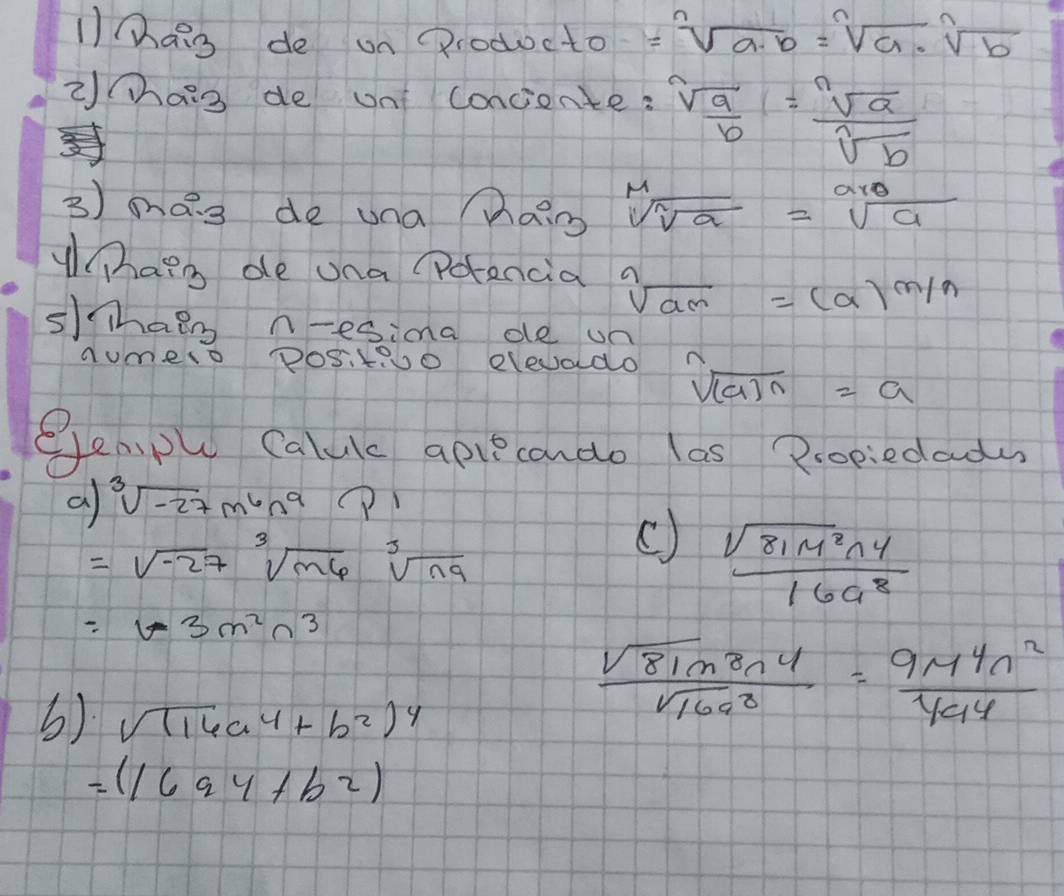 1) Raiz de un Producto = ⁿ√a.b = ⁿ√a . ⁿ√b
2) Raiz de un conciente : ⁿ√a/b = ⁿ√a / ⁿ√b
3) Raiz de una Raiz ᴹ√ⁿ√a = √a
4) Raiz de una Potencia ⁿ√am = (a)m/n
5) Raiz n-esima de un
numero positivo elevado ⁿ√(a)n = a
Ejemplo Calule aplicando las Propiedades
a) ³√-27 m⁶n⁹ P1
= √-27 ³√m6 ³√n9
= -3m²n³
b) √(16a4 + b2)4
= (16a4 + b2)
c) √81M⁸n4 / 16a⁸
√81m8n4 / √16a8 = 9M4n² / 4a4